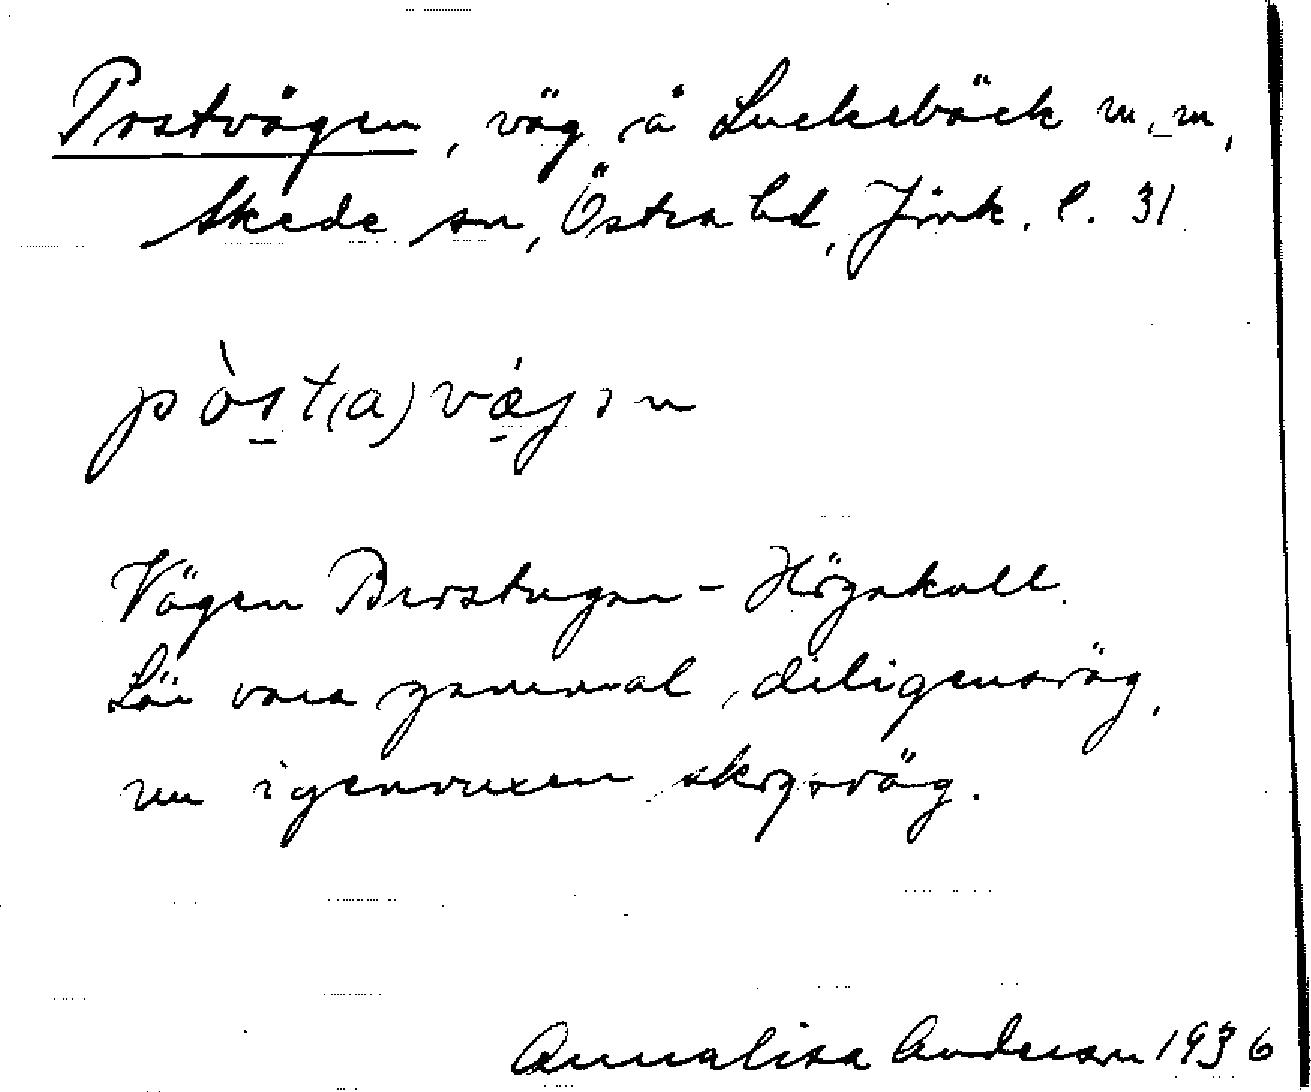 Postvägen, väg å Luckebäck m.m,
Skede sn, Östra hd, Jönk. l. 31
pòst(a)vǽjən
Vägen Berstugan - Högakull.
Lär vara gammal diligensväg,
nu igenvuxen skogsväg.
Annalisa Anderson 1936